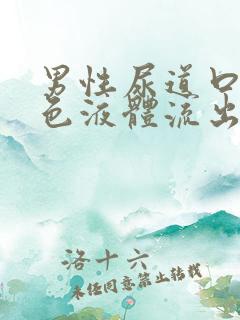 男性尿道口
色液體流出
洛十六
未经同意禁止转载